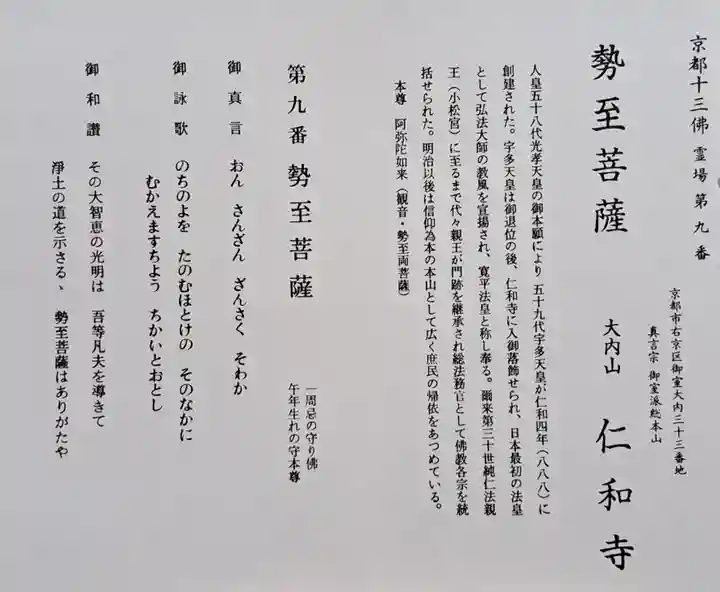 京都十三佛霊場第九番
勢至菩薩
京都市右京区御室大内三十三番地
真言宗 御室派総本山
大内山 仁和寺
人皇五十八代光孝天皇の御本願により 五十九代宇多天皇が仁和四年（八八八）に
創建された。宇多天皇は御退位の後、仁和寺に入御落飾せられ、日本最初の法皇
として弘法大師の教風を宣揚され、寛平法皇と称し奉る。爾来第三十世純仁法親
王（小松宮）に至るまで代々親王が門跡を継承され総法務官として佛教各宗を統
括せられた。明治以後は信仰為本の本山として広く庶民の帰依をあつめている。
本尊 阿弥陀如来（観音・勢至両菩薩）
第九番 勢至菩薩
一周忌の守り佛
午年生れの守本尊
御真言 おん さんざん ざんさく そわか
御詠歌 のちのよを たのむほとけの そのなかに
むかえますちよう ちかいとおとし
御和讃 その大智恵の光明は 吾等凡夫を導きて
淨土の道を示さるゝ 勢至菩薩はありがたや